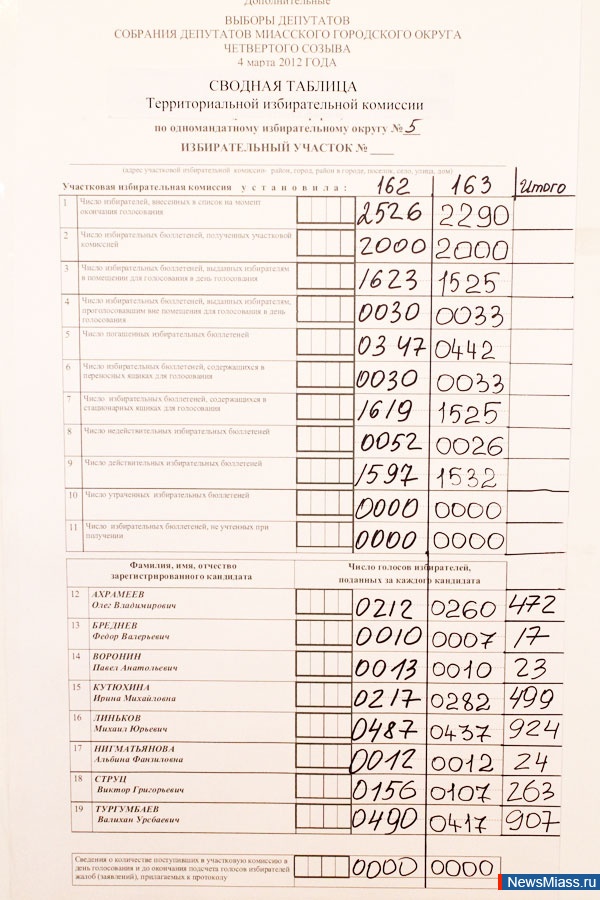 Дополнительные
ВЫБОРЫ ДЕПУТАТОВ
СОБРАНИЯ ДЕПУТАТОВ МИАССКОГО ГОРОДСКОГО ОКРУГА
ЧЕТВЕРТОГО СОЗЫВА
4 марта 2012 ГОДА
СВОДНАЯ ТАБЛИЦА
Территориальной избирательной комиссии
по одномандатному избирательному округу № 5
ИЗБИРАТЕЛЬНЫЙ УЧАСТОК № ___
(адрес участковой избирательной комиссии: район, город, район в городе, поселок, село, улица, дом)
Участковая избирательная комиссия установила: 162 163 Итого
1 Число избирателей, внесенных в список на момент 2526 2290
окончания голосования
2 Число избирательных бюллетеней, полученных участковой 2000 2000
комиссией
3 Число избирательных бюллетеней, выданных избирателям 1623 1525
в помещении для голосования в день голосования
4 Число избирательных бюллетеней, выданных избирателям, 0030 0033
проголосовавшим вне помещения для голосования в день
голосования
5 Число погашенных избирательных бюллетеней 0347 0442
6 Число избирательных бюллетеней, содержащихся в 0030 0033
переносных ящиках для голосования
7 Число избирательных бюллетеней, содержащихся в 1619 1525
стационарных ящиках для голосования
8 Число недействительных избирательных бюллетеней 0052 0026
9 Число действительных избирательных бюллетеней 1597 1532
10 Число утраченных избирательных бюллетеней 0000 0000
11 Число избирательных бюллетеней, не учтенных при 0000 0000
получении
Фамилия, имя, отчество Число голосов избирателей,
зарегистрированного кандидата поданных за каждого кандидата
12 АХРАМЕЕВ 0212 0260 472
Олег Владимирович
13 БРЕДНЕВ 0010 0007 17
Федор Валерьевич
14 ВОРОНИН 0013 0010 23
Павел Анатольевич
15 КУТЮХИНА 0217 0282 499
Ирина Михайловна
16 ЛИНЬКОВ 0487 0437 924
Михаил Юрьевич
17 НИГМАТЬЯНОВА 0012 0012 24
Альбина Фанзиловна
18 СТРУЦ 0156 0107 263
Виктор Григорьевич
19 ТУРГУМБАЕВ 0490 0417 907
Валихан Урсбаевич
Сведения о количестве поступивших в участковую комиссию в 0000 0000
день голосования и до окончания подсчета голосов избирателей
жалоб (заявлений), прилагаемых к протоколу
NewsMiass.ru